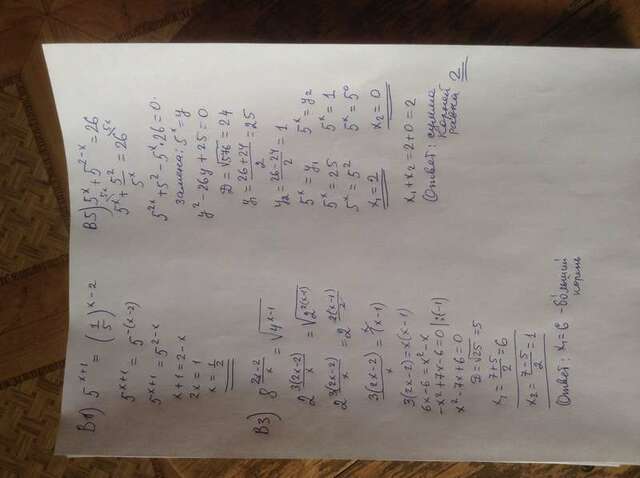 В1) 5^(x+1) = (1/5)^(x-2)
5^(x+1) = 5^(-(x-2))
5^(x+1) = 5^(2-x)
x+1 = 2-x
2x = 1
x = 1/2
В3) 8^((2x-2)/x) = √(4^(x-1))
2^(3(2x-2)/x) = √(2^(2(x-1)))
2^(3(2x-2)/x) = 2^(2(x-1)/2)
3(2x-2)/x = (x-1)
3(2x-2) = x(x-1)
6x-6 = x²-x
-x²+7x-6=0 |:(-1)
x²-7x+6=0
D=√25 =5
x₁ = (7+5)/2 = 6
x₂ = (7-5)/2 = 1
Ответ: x₁=6 - больший
корень
В5) 5^x + 5^(2-x) = 26
5^x + 5²/5^x = 26
5^(2x) + 5² - 5^x · 26 = 0
замена: 5^x = y
y² - 26y + 25 = 0
D = √576 = 24
y₁ = (26+24)/2 = 25
y₂ = (26-24)/2 = 1
5^x = y₁ 5^x = y₂
5^x = 25 5^x = 1
5^x = 5² 5^x = 5⁰
x₁ = 2 x₂ = 0
x₁ + x₂ = 2+0 = 2
Ответ: сумма
корней
равна 2